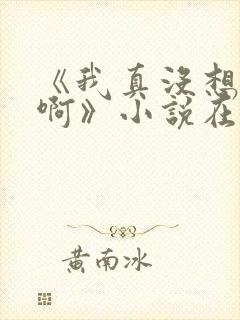 《我真没想
啊》小说在
黄南冰